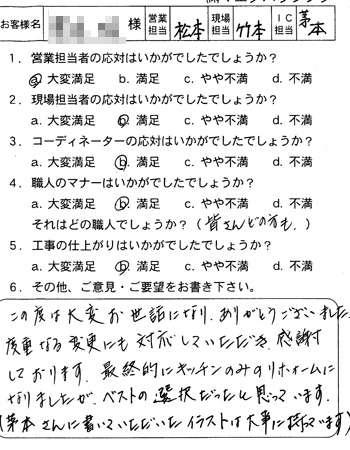 お客様名 様 営業担当 松本 現場担当 竹本 IC担当 茅本
1．営業担当者の応対はいかがでしたでしょうか？
a. 大変満足 b. 満足 c. やや不満 d. 不満
2．現場担当者の応対はいかがでしたでしょうか？
a. 大変満足 b. 満足 c. やや不満 d. 不満
3．コーディネーターの応対はいかがでしたでしょうか？
a. 大変満足 b. 満足 c. やや不満 d. 不満
4．職人のマナーはいかがでしたでしょうか？
a. 大変満足 b. 満足 c. やや不満 d. 不満
それはどの職人でしょうか？（皆さんどの方も.）
5．工事の仕上がりはいかがでしたでしょうか？
a. 大変満足 b. 満足 c. やや不満 d. 不満
6．その他、ご意見・ご要望をお書き下さい。
この度は大変お世話になり、ありがとうございました.
度重なる変更にも対応していただき、感謝
しております. 最終的にキッチンのみのリホームに
なりましたが、ベストの選択だったと思っています.
(茅本さんに書いていただいたイラストは大事に持っています)